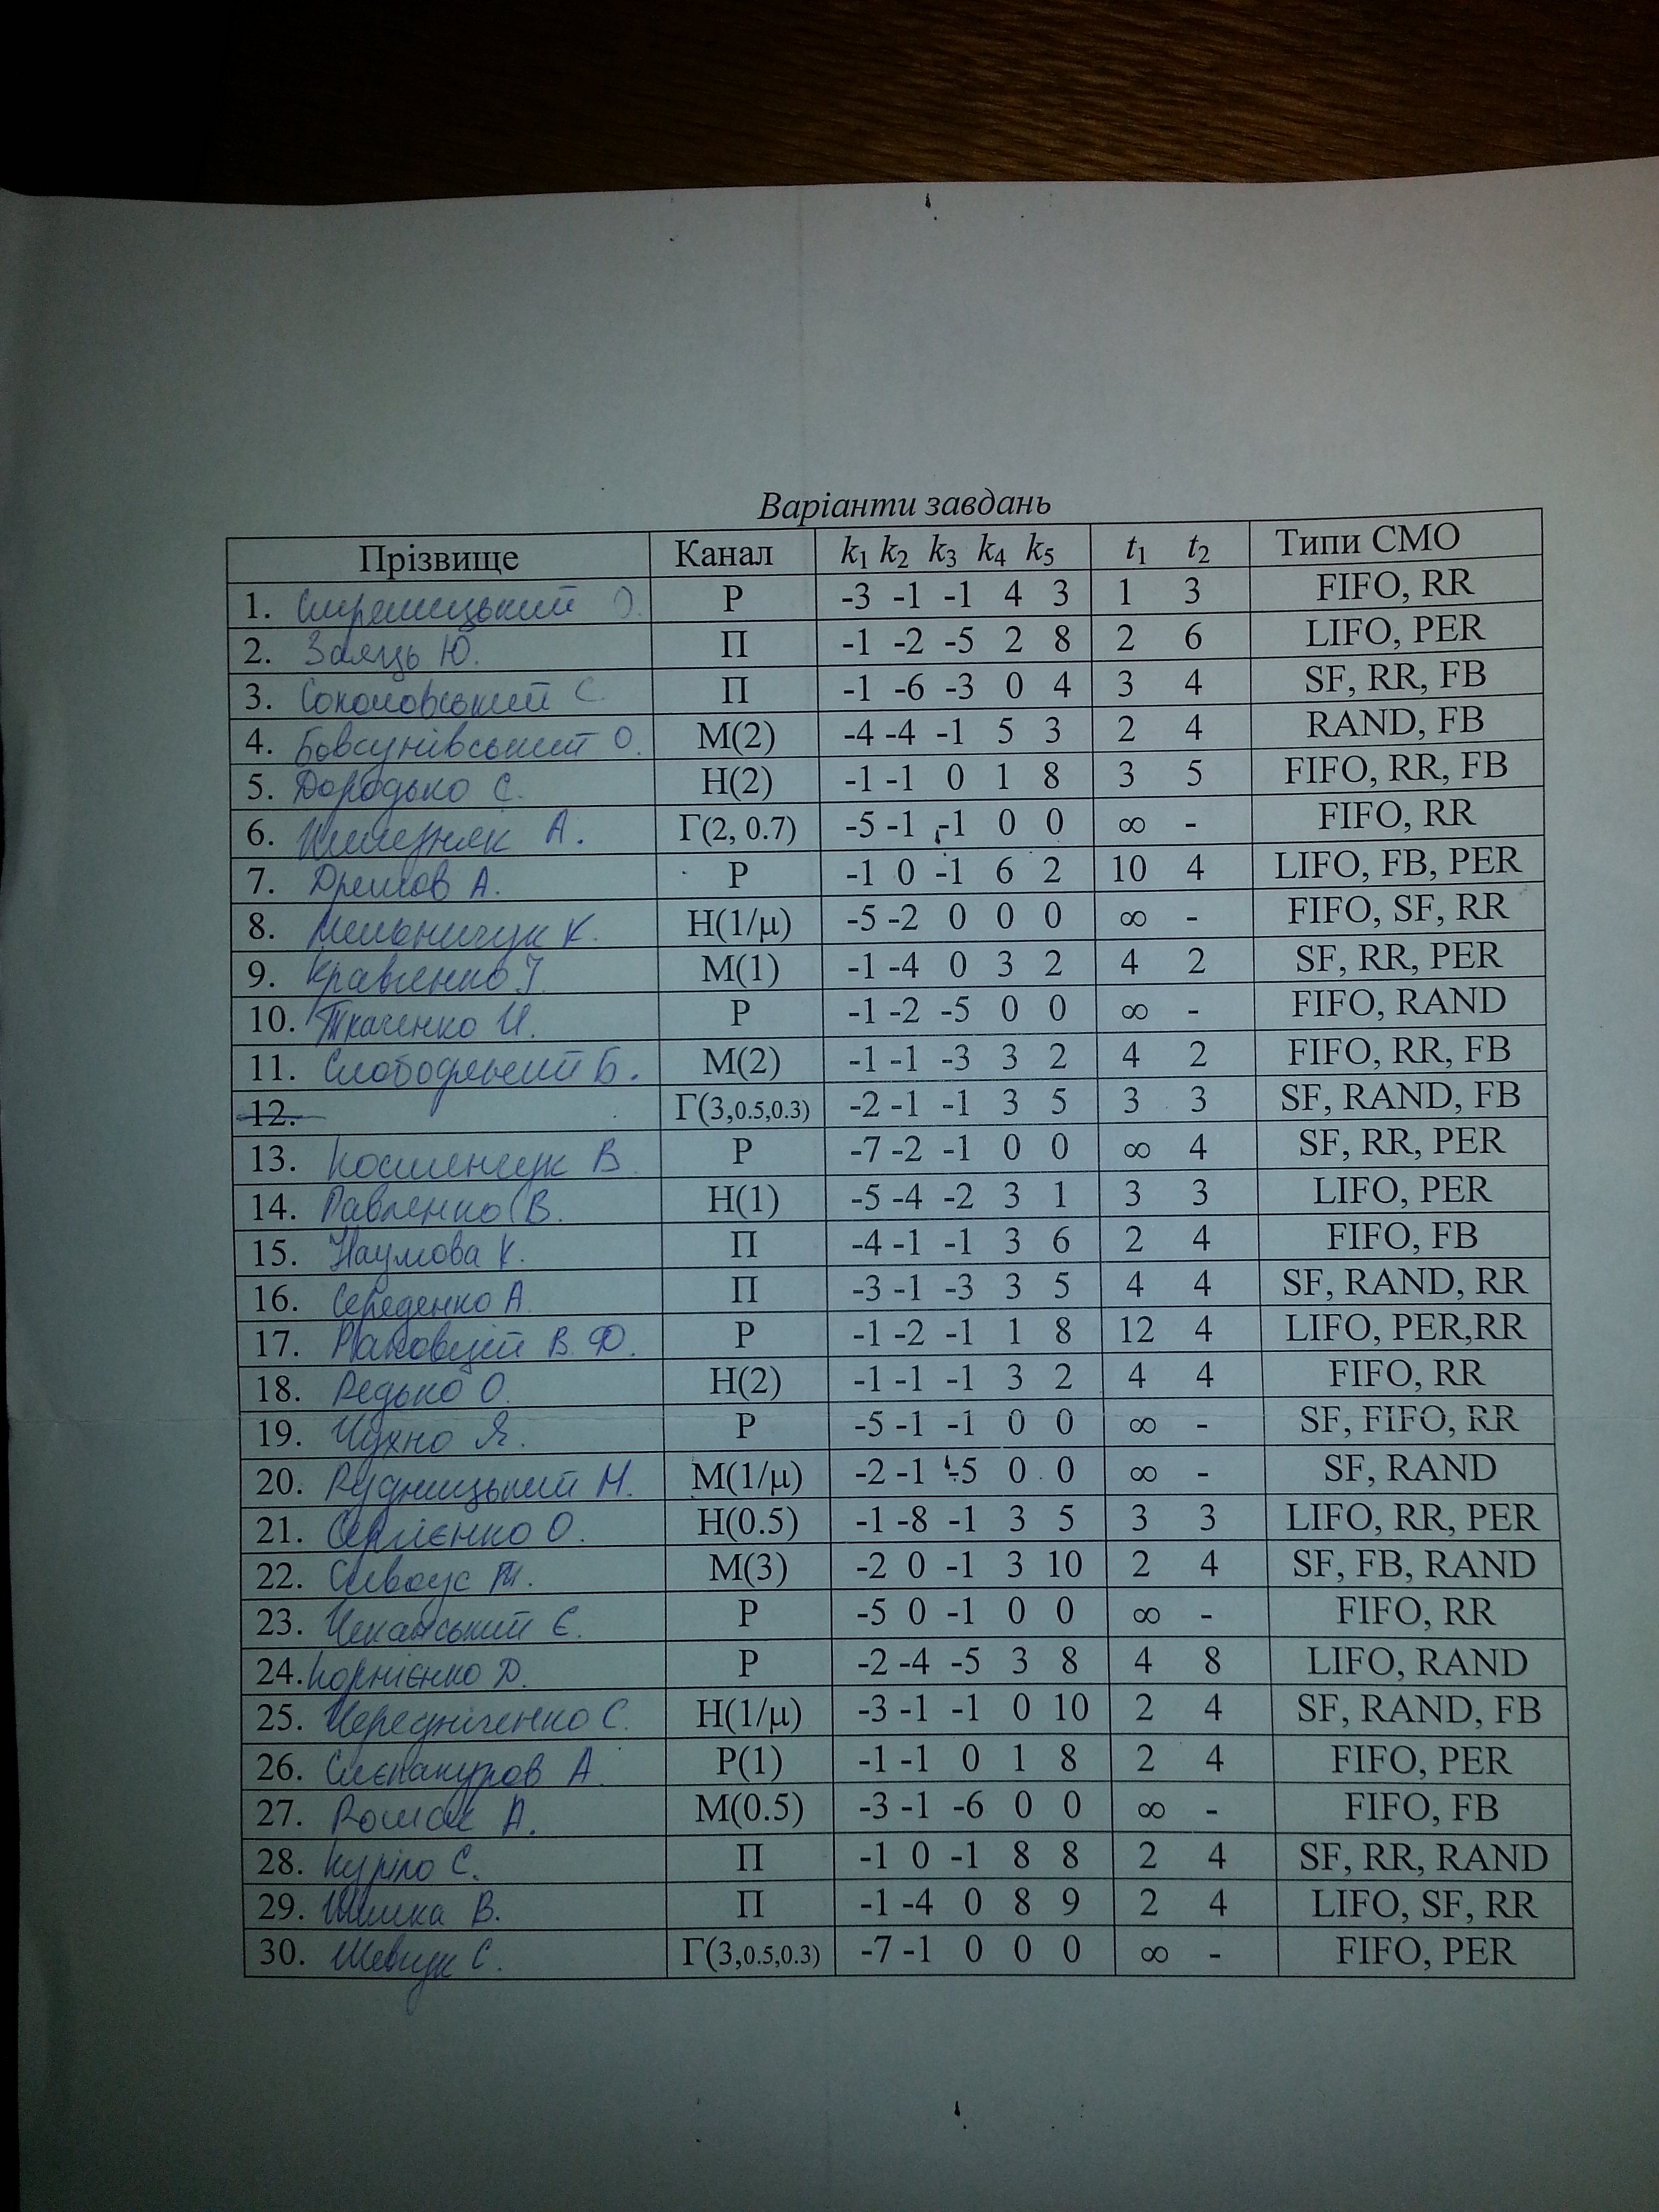 Варіанти завдань
Прізвище Канал k1 k2 k3 k4 k5 t1 t2 Типи СМО
1. Р -3 -1 -1 4 3 1 3 FIFO, RR
2. Заяць Ю. П -1 -2 -5 2 8 2 6 LIFO, PER
3. Соколовський С. П -1 -6 -3 0 4 3 4 SF, RR, FB
4. Бовсунівський О. М(2) -4 -4 -1 5 3 2 4 RAND, FB
5. С. Н(2) -1 -1 0 1 8 3 5 FIFO, RR, FB
6. А. Г(2, 0.7) -5 -1 -1 0 0 ∞ - FIFO, RR
7. А. Р -1 0 -1 6 2 10 4 LIFO, FB, PER
8. Мельничук К. Н(1/μ) -5 -2 0 0 0 ∞ - FIFO, SF, RR
9. Кравченко М(1) -1 -4 0 3 2 4 2 SF, RR, PER
10. Ткаченко И. Р -1 -2 -5 0 0 ∞ - FIFO, RAND
11. Б. М(2) -1 -1 -3 3 2 4 2 FIFO, RR, FB
12. Г(3,0.5,0.3) -2 -1 -1 3 5 3 3 SF, RAND, FB
13. В. Р -7 -2 -1 0 0 ∞ 4 SF, RR, PER
14. Павленко В. Н(1) -5 -4 -2 3 1 3 3 LIFO, PER
15. Наумова К. П -4 -1 -1 3 6 2 4 FIFO, FB
16. Середенко А. П -3 -1 -3 3 5 4 4 SF, RAND, RR
17. В. Ф. Р -1 -2 -1 1 8 12 4 LIFO, PER,RR
18. Редько О. Н(2) -1 -1 -1 3 2 4 4 FIFO, RR
19. Чухно Я. Р -5 -1 -1 0 0 ∞ - SF, FIFO, RR
20. Рудницький М. М(1/μ) -2 -1 -5 0 0 ∞ - SF, RAND
21. Сергієнко О. Н(0.5) -1 -8 -1 3 5 3 3 LIFO, RR, PER
22. Сивоус М(3) -2 0 -1 3 10 2 4 SF, FB, RAND
23. Чеканський Є. Р -5 0 -1 0 0 ∞ - FIFO, RR
24. Корнієнко Д. Р -2 -4 -5 3 8 4 8 LIFO, RAND
25. Чередніченко С. Н(1/μ) -3 -1 -1 0 10 2 4 SF, RAND, FB
26. А. Р(1) -1 -1 0 1 8 2 4 FIFO, PER
27. А. М(0.5) -3 -1 -6 0 0 ∞ - FIFO, FB
28. Куріло С. П -1 0 -1 8 8 2 4 SF, RR, RAND
29. В. П -1 -4 0 8 9 2 4 LIFO, SF, RR
30. Шевчук С. Г(3,0.5,0.3) -7 -1 0 0 0 ∞ - FIFO, PER